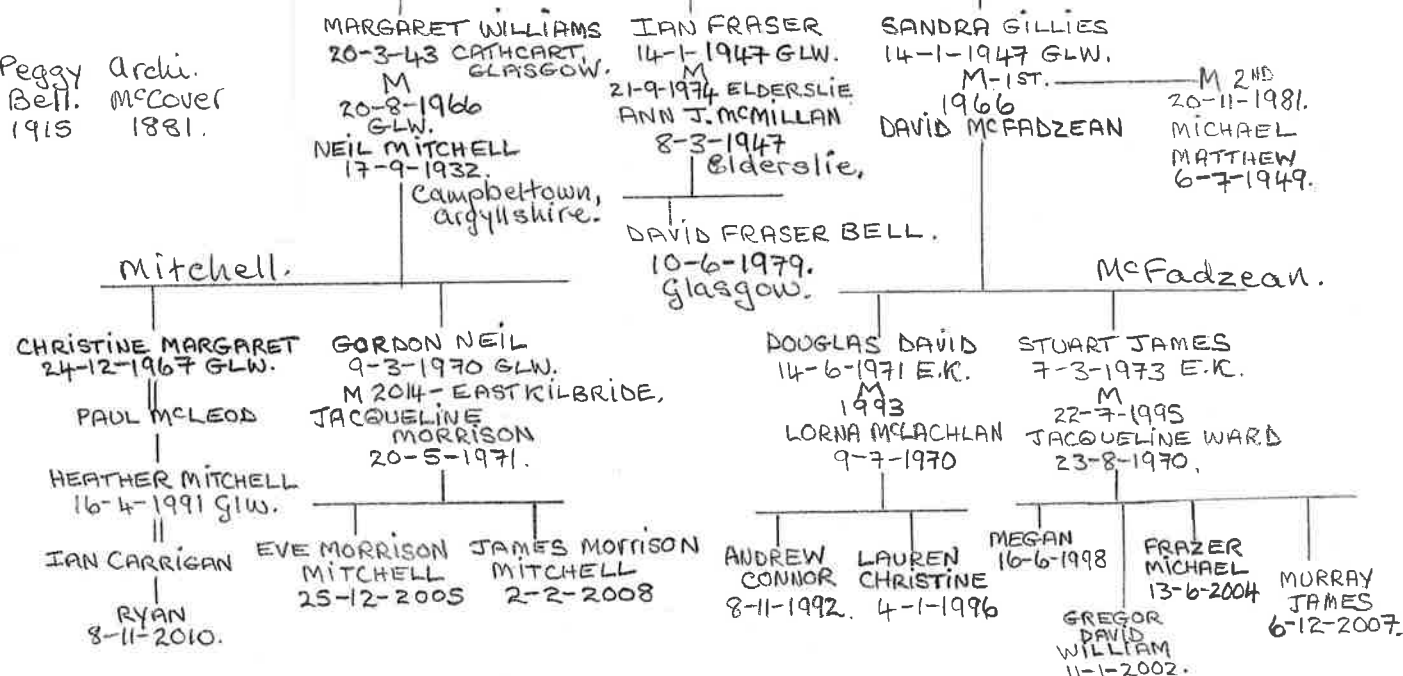 Peggy Archi.
Bell. McCover
1915 1881.
MARGARET WILLIAMS
20-3-43 CATHCART,
GLASGOW.
M
20-8-1966
GLW.
NEIL MITCHELL
17-9-1932.
Campbeltown,
argyllshire.
IAN FRASER
14-1-1947 GLW.
M
21-9-1974 ELDERSLIE
ANN J. MCMILLAN
8-3-1947
Elderslie,
DAVID FRASER BELL.
10-6-1979.
Glasgow.
SANDRA GILLIES
14-1-1947 GLW.
M-1ST.
1966
DAVID MCFADZEAN
M 2ND
20-11-1981.
MICHAEL
MATTHEW
6-7-1949.
Mitchell.
CHRISTINE MARGARET
24-12-1967 GLW.
PAUL MCLEOD
HEATHER MITCHELL
16-4-1991 Glw.
IAN CARRIGAN
RYAN
8-11-2010.
GORDON NEIL
9-3-1970 GLW.
M 2014 - EAST KILBRIDE,
JACQUELINE
MORRISON
20-5-1971.
EVE MORRISON
MITCHELL
25-12-2005
JAMES MORRISON
MITCHELL
2-2-2008
McFadzean.
DOUGLAS DAVID
14-6-1971 E.K.
M
1993
LORNA MCLACHLAN
9-7-1970
ANDREW
CONNOR
8-11-1992.
LAUREN
CHRISTINE
4-1-1996
STUART JAMES
7-3-1973 E.K.
M
22-7-1995
JACQUELINE WARD
23-8-1970.
MEGAN
16-6-1998
GREGOR
DAVID
WILLIAM
11-1-2002.
FRAZER
MICHAEL
13-6-2004
MURRAY
JAMES
6-12-2007.